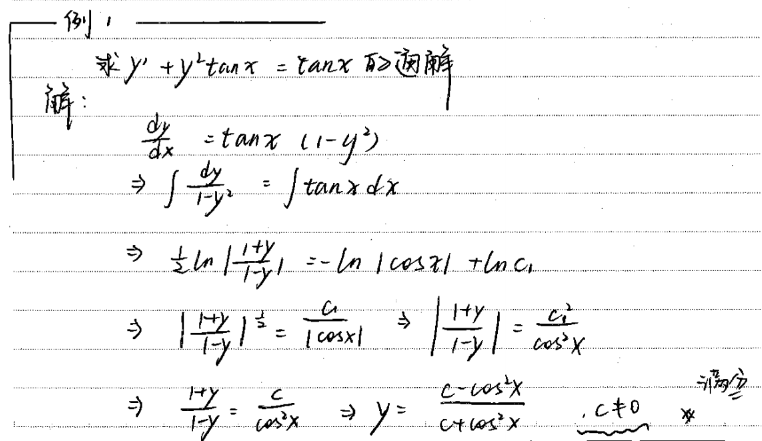 例1
求 y' + y² tanx = tanx 的通解
解:
dy/dx = tanx (1-y²)
⇒ ∫ dy/(1-y²) = ∫ tanx dx
⇒ 1/2 ln |(1+y)/(1-y)| = -ln |cosx| + ln c₁
⇒ |(1+y)/(1-y)|^(1/2) = c₁/|cosx| ⇒ |(1+y)/(1-y)| = c₁²/cos²x
⇒ (1+y)/(1-y) = c/cos²x ⇒ y = (c-cos²x)/(c+cos²x) . c≠0 *